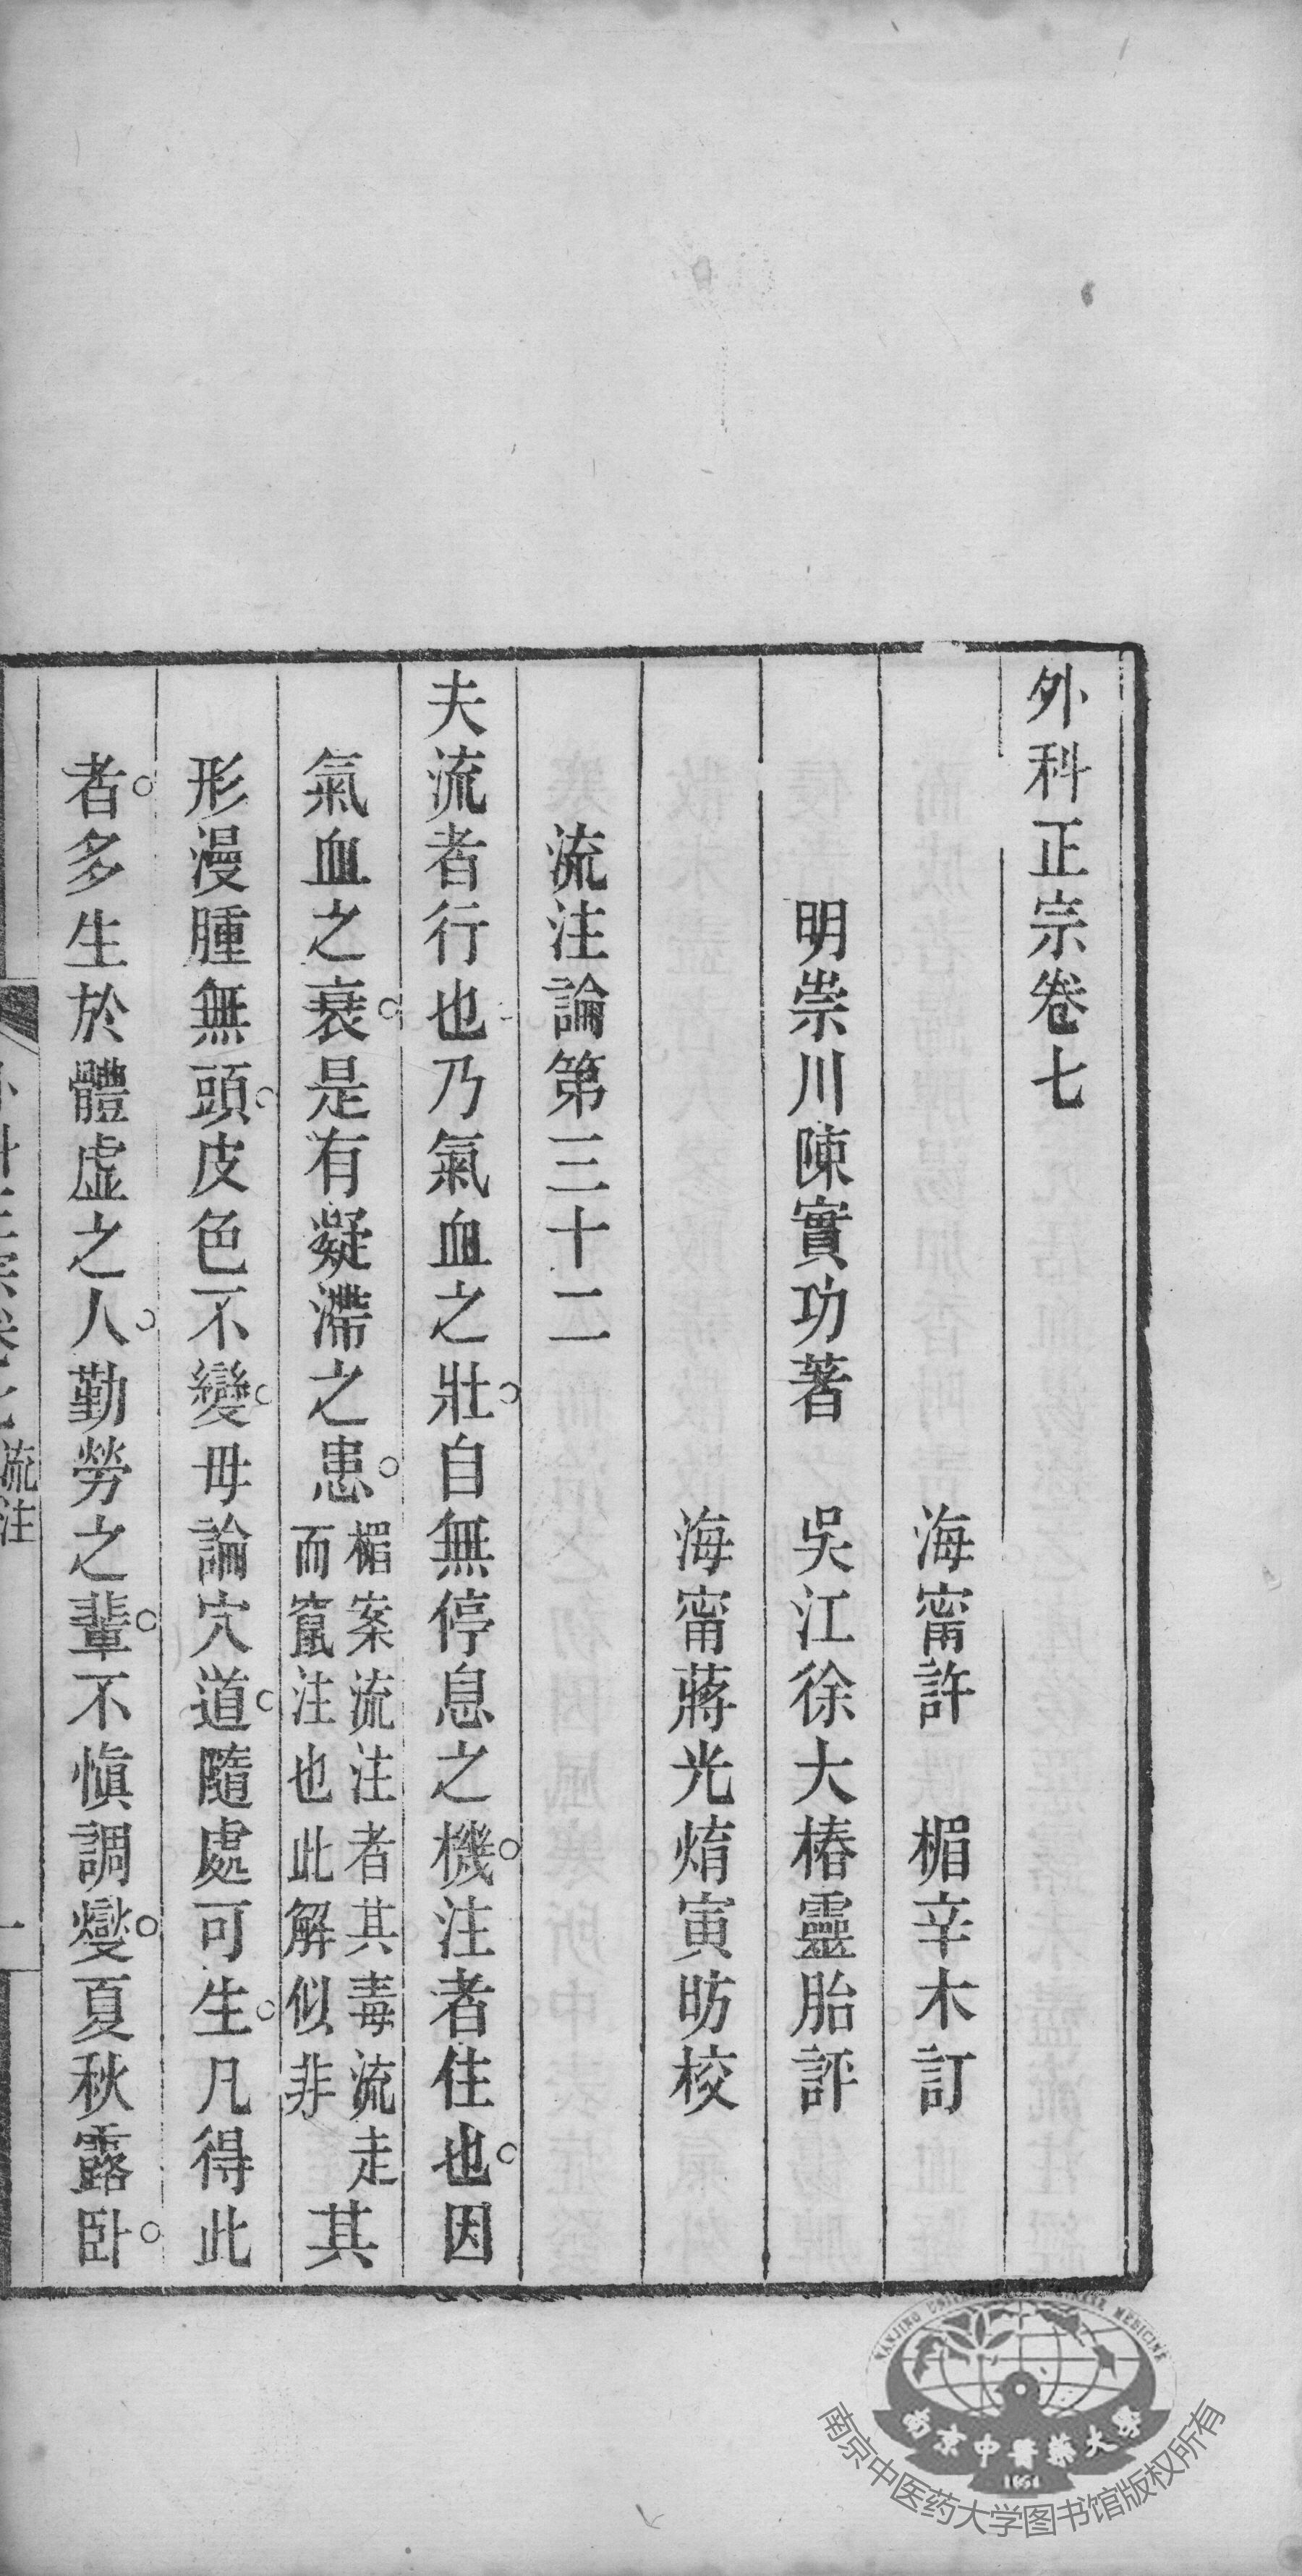 外科正宗卷七
海甯許　楣辛木訂
明崇川陳實功著　吳江徐大椿靈胎評
海甯蔣光焴寅昉校
流注論第三十二
夫流者行也乃氣血之壯自無停息之機注者住也因
氣血之衰是有凝滯之患楣案流注者其毒流走而竄注也此解似非其
形漫腫無頭皮色不變毋論穴道隨處可生凡得此
者多生於體虛之人勤勞之輩不慎調燮夏秋露臥
流注
一
NANJING UNIVERSITY OF CHINESE MEDICINE
南京中醫藥大學
1954
南京中医药大学图书馆版权所有